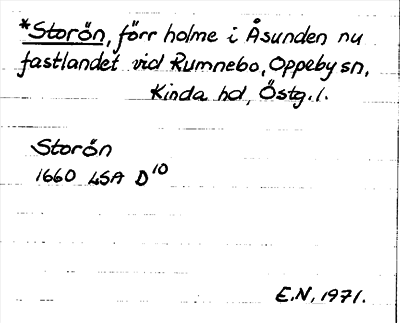 *Storön, förr holme i Åsunden nu
fastlandet vid Rumnebo, Oppeby sn,
Kinda hd, Östg. l.
Storön
1660 LSA D¹⁰
E.N, 1971.